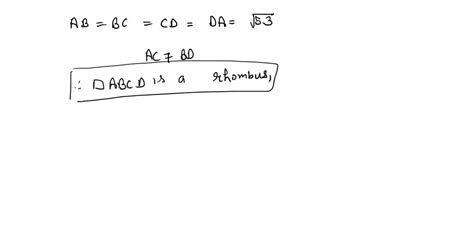 AB = BC = CD = DA = √53
AC ≠ BD
∴ □ABCD is a rhombus,